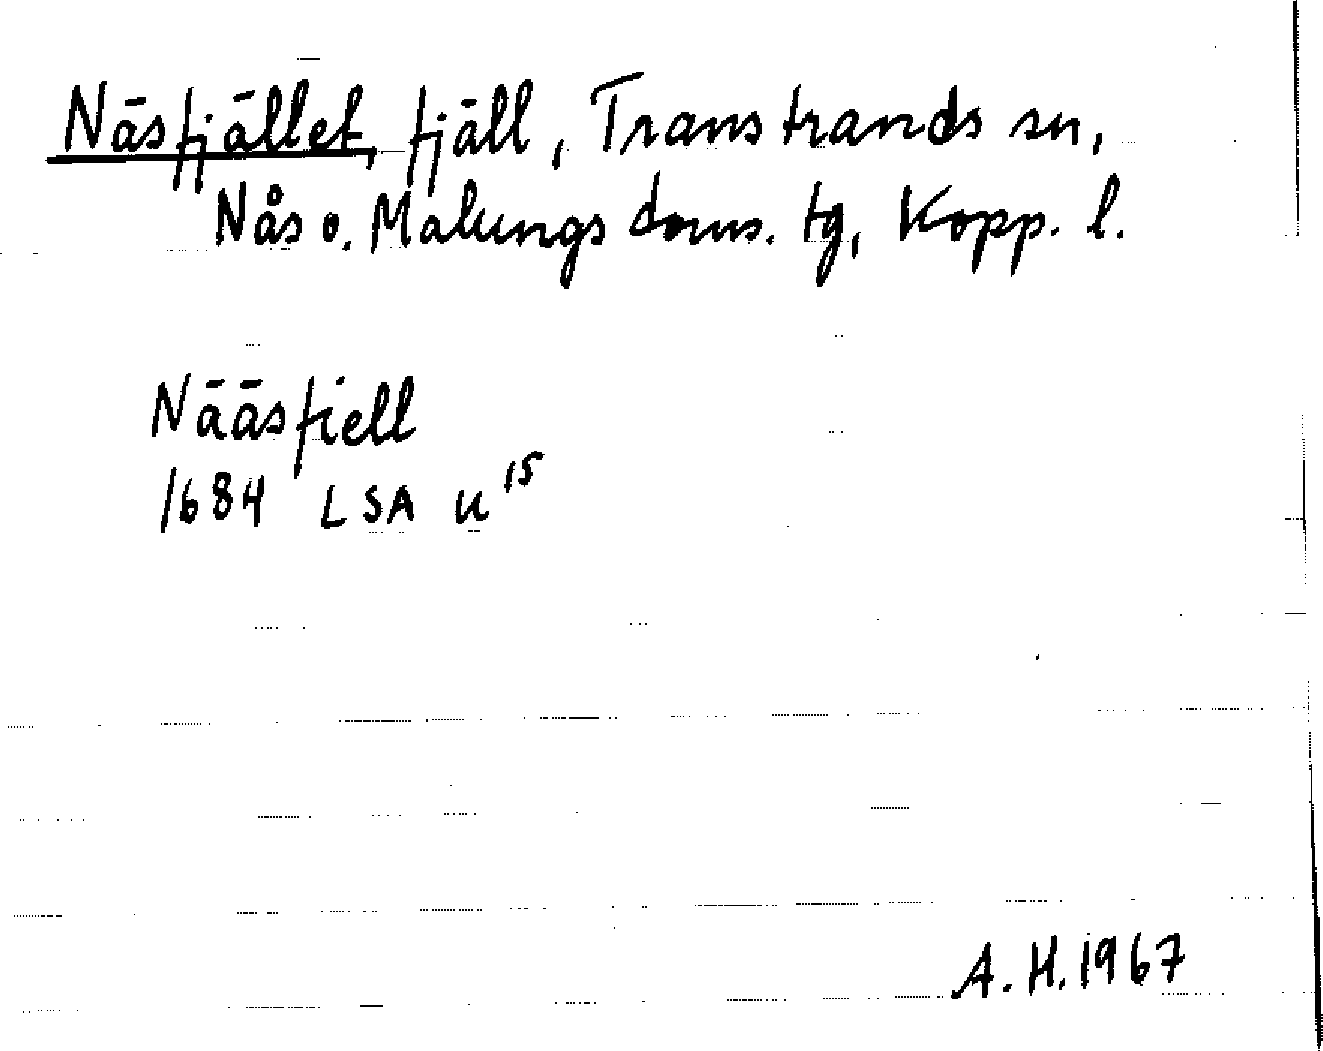 Näsfjället, fjäll, Transtrands sn,
Nås o. Malungs doms. tg, Kopp. l.
Nääsfiell
1684 LSA u 15
A. H. 1967